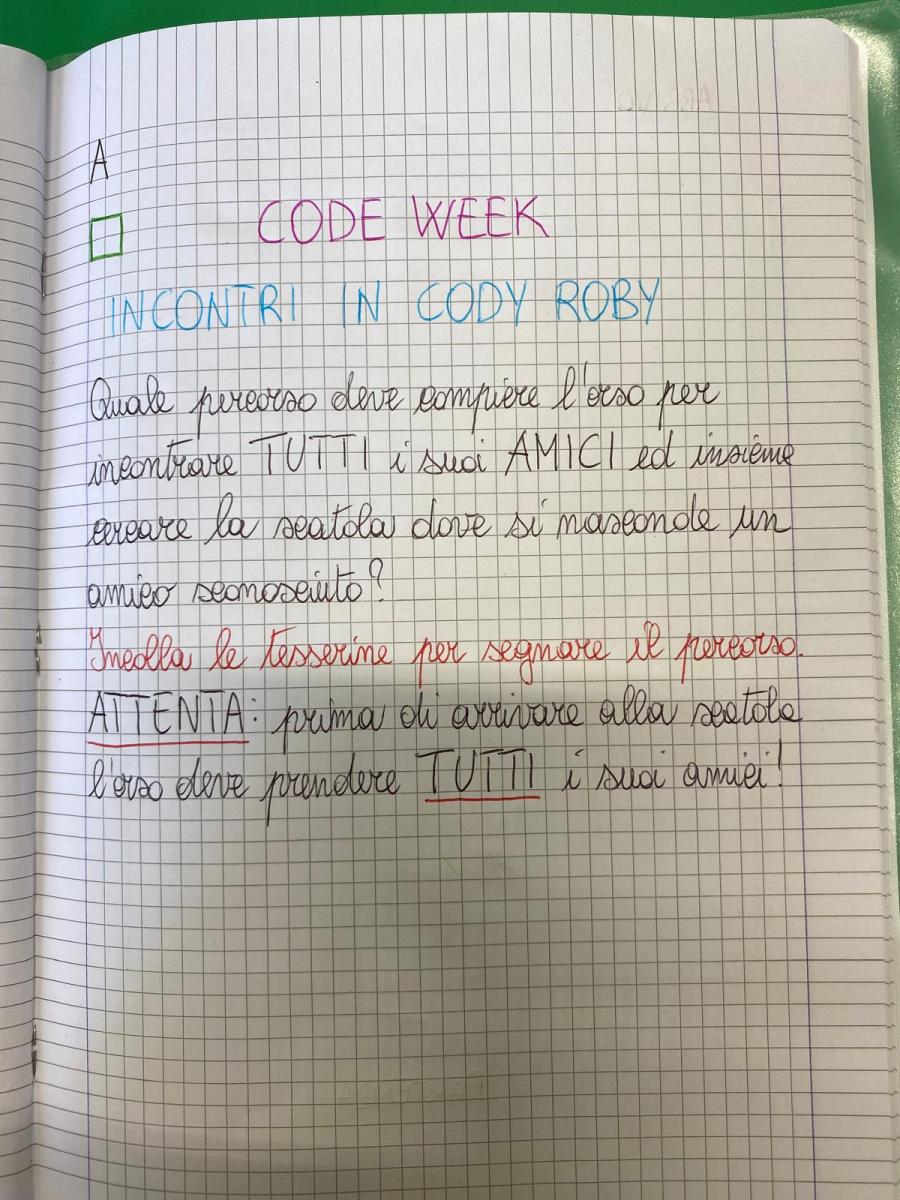 A
CODE WEEK
INCONTRI IN CODY ROBY
Quale percorso deve compiere l'orso per
incontrare TUTTI i suoi AMICI ed insieme
creare la scatola dove si nasconde un
amico sconosciuto?
Incolla le tesserine per segnare il percorso.
ATTENTA: prima di arrivare alla scatola
l'orso deve prendere TUTTI i suoi amici!